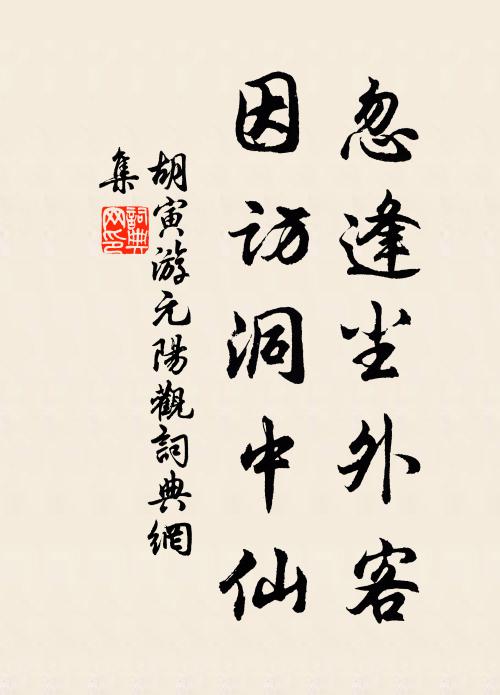 忽逢尘外客
因访洞中仙
胡寅游元陽觀詞典網
集
詞典
网印